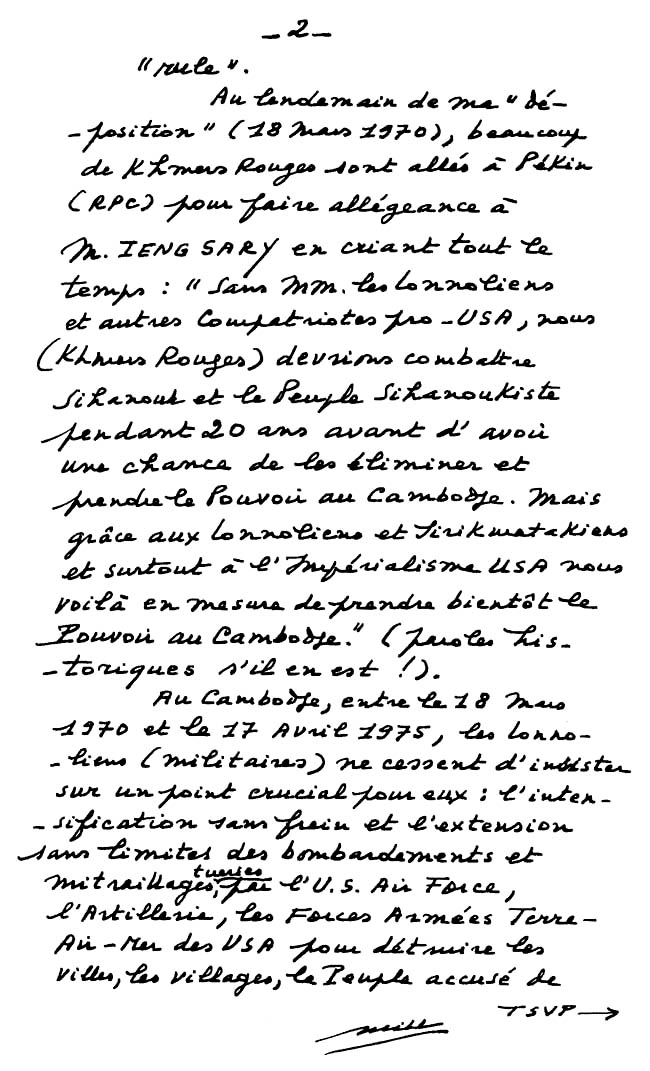 - 2 -
"rule".
Au lendemain de ma "dé-
-position" (18 Mars 1970), beaucoup
de Khmers Rouges sont allés à Pékin
(RPC) pour faire allégeance à
M. IENG SARY en criant tout le
temps : "Sans MM. les lonnoliens
et autres Compatriotes pro-USA, nous
(Khmers Rouges) devrions combattre
Sihanouk et le Peuple Sihanoukiste
pendant 20 ans avant d'avoir
une chance de les éliminer et
prendre le Pouvoir au Cambodge. Mais
grâce aux lonnoliens et Sirikmatakiens
et surtout à l'Impérialisme USA nous
voilà en mesure de prendre bientôt le
Pouvoir au Cambodge." (paroles his-
-toriques s'il en est !).
Au Cambodge, entre le 18 Mars
1970 et le 17 Avril 1975, les lonno-
-liens (militaires) ne cessent d'insister
sur un point crucial pour eux : l'inten-
-sification sans frein et l'extension
sans limites des bombardements et
mitraillages, tueries par l'U.S. Air Force,
l'Artillerie, les Forces Armées Terre-
Air-Mer des USA pour détruire les
villes, les villages, le Peuple accusé de
TSVP →